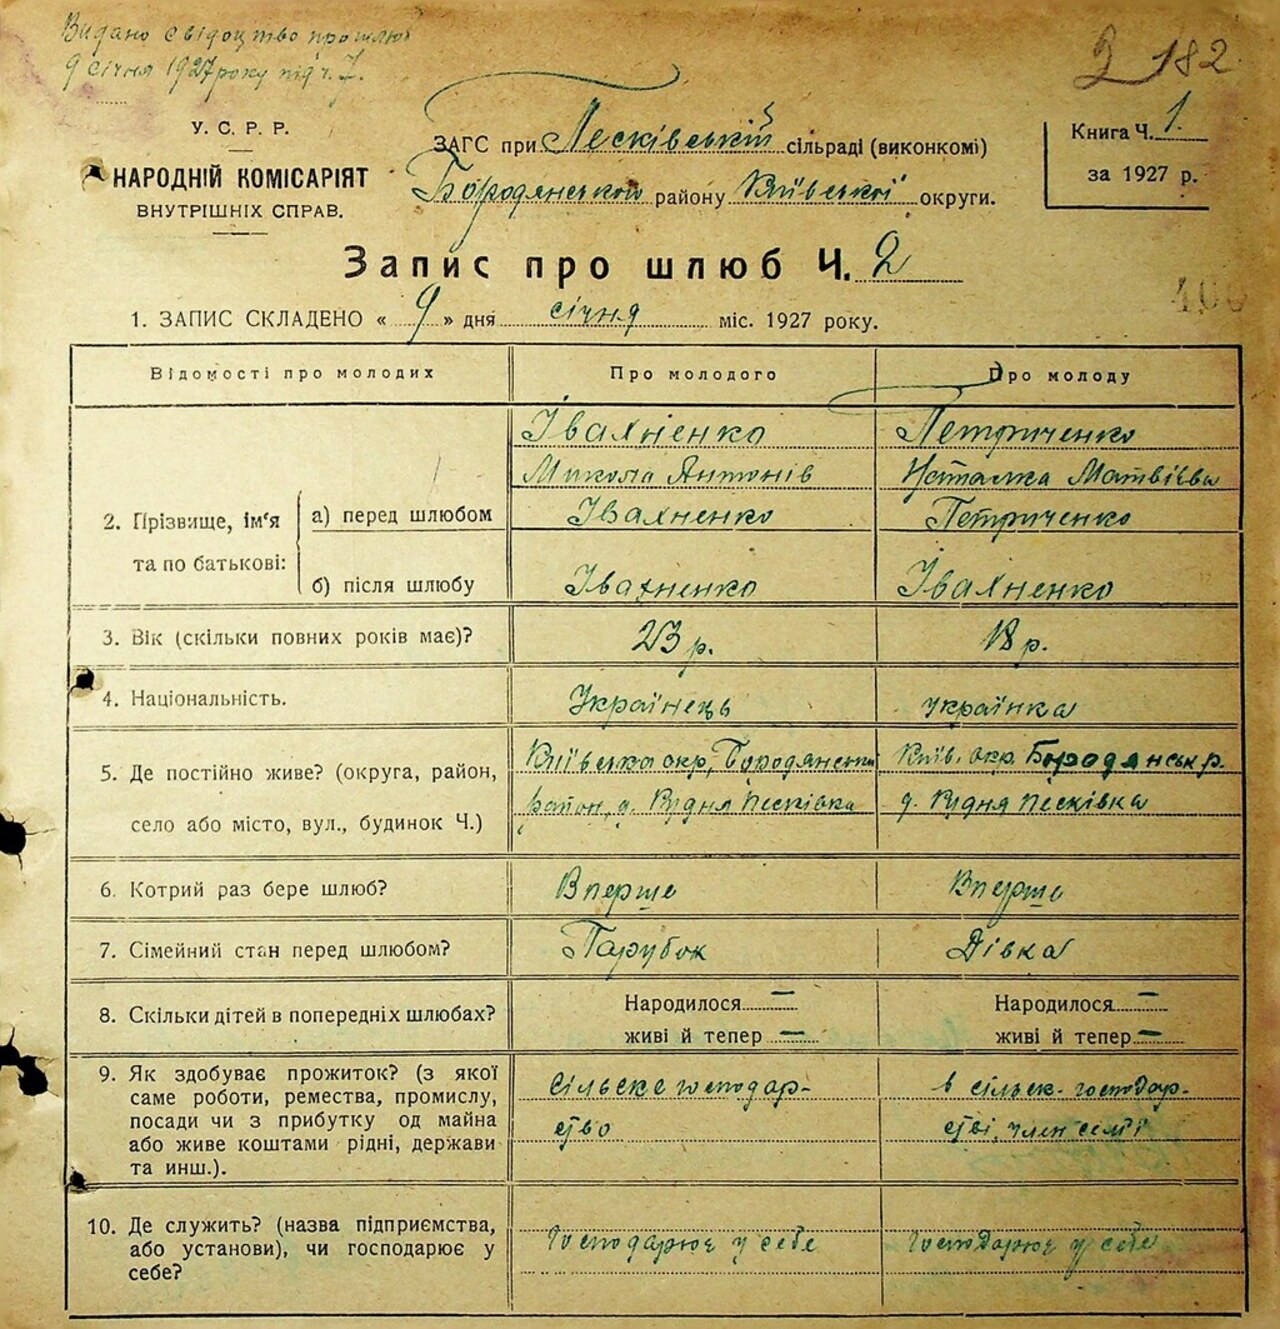 Видано свідоцтво про шлюб
9 січня 1927 року під ч. 7.
182
У. С. Р. Р.
НАРОДНІЙ КОМІСАРІЯТ
ВНУТРІШНІХ СПРАВ.
ЗАГС при Песківській сільраді (виконкомі)
Бородянського району Київської округи.
Книга Ч. 1.
за 1927 р.
Запис про шлюб Ч. 2
1. ЗАПИС СКЛАДЕНО « 9 » дня січня міс. 1927 року.
Відомості про молодих Про молодого Про молоду
Івахненко Петриченко
Микола Антонів Наталка Матвієва
2. Прізвище, ім'я та по батькові:
а) перед шлюбом Івахненко Петриченко
б) після шлюбу Івахненко Івахненко
3. Вік (скільки повних років має)? 23 р. 18 р.
4. Національність. Українець українка
5. Де постійно живе? (округа, район,
село або місто, вул., будинок Ч.)
Київська окр, Бородянський
район, д. Рудня Песківка
Київ. окр. Бородянськ р.
д. Рудня Песківка
6. Котрий раз бере шлюб? Вперше Вперше
7. Сімейний стан перед шлюбом? Парубок Дівка
8. Скільки дітей в попередніх шлюбах?
Народилося — Народилося —
живі й тепер — живі й тепер —
9. Як здобуває прожиток? (з якої
саме роботи, ремества, промислу,
посади чи з прибутку од майна
або живе коштами рідні, держави
та инш.).
Сільске господар-
ство
в сільск. господар-
стві, член сем'ї
10. Де служить? (назва підприємства,
або установи), чи господарює у
себе?
Господарює у себе Господарює у себе